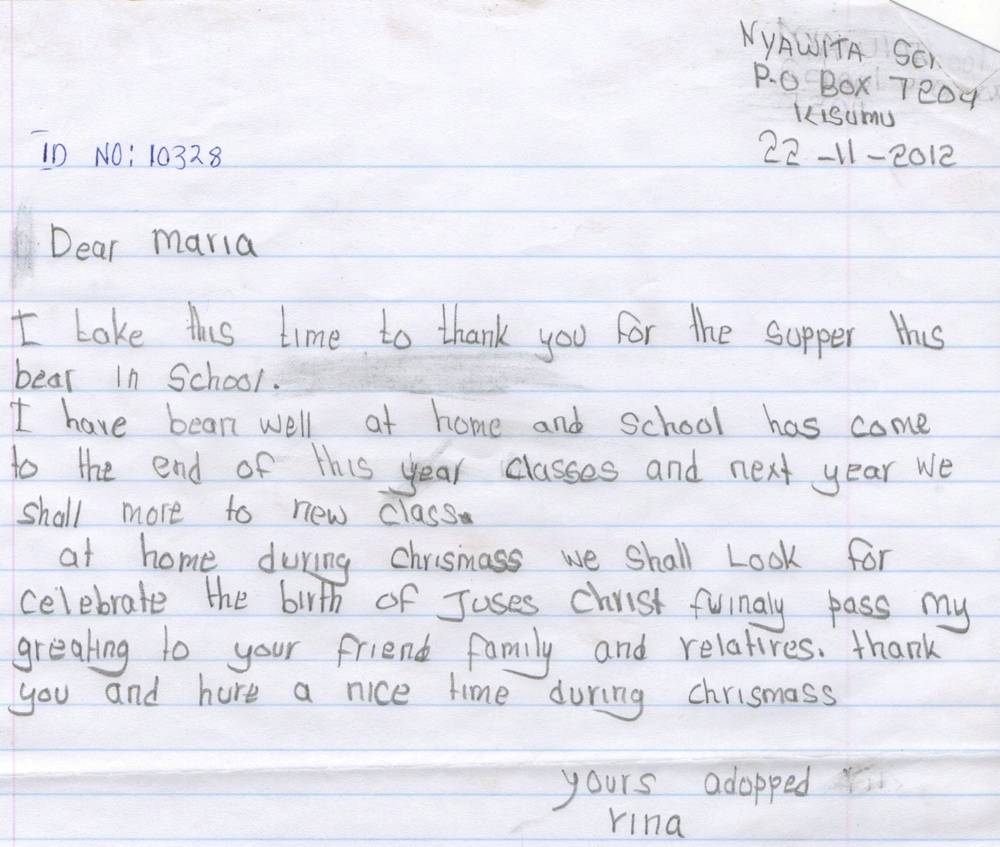 NYAWITA SCH
P.O BOX 7204
KISUMU
22-11-2012
ID NO: 10328
Dear Maria
I take this time to thank you for the supper this
bear in School.
I have bean well at home and School has come
to the end of this year classes and next year we
shall more to new class.
at home during chrismass we shall Look for
celebrate the birth of Juses Christ fwinaly pass my
greating to your friend family and relatires. thank
you and hure a nice time during chrismass
yours adopped
rina